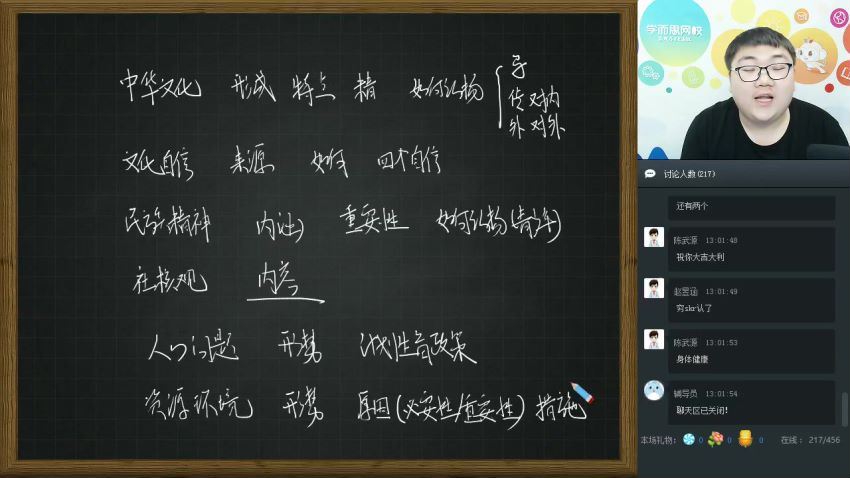 中华文化 形成 特点 精 如何弘扬
导
传 对内
外 对外
文化自信 来源 如何 四个自信
民族精神 内涵 重要性 如何弘扬(青少年)
社核观 内容
人口问题 形势 计划生育政策
资源环境 形势 原因(必要性/重要性) 措施
学而思网校
讨论人数(217)
还有两个
陈武源 13:01:48
祝你大吉大利
赵昱涵 13:01:49
穷skr认了
陈武源 13:01:53
身体健康
辅导员 13:01:54
聊天区已关闭!
本场礼物: 0 0 0 在线: 217/456